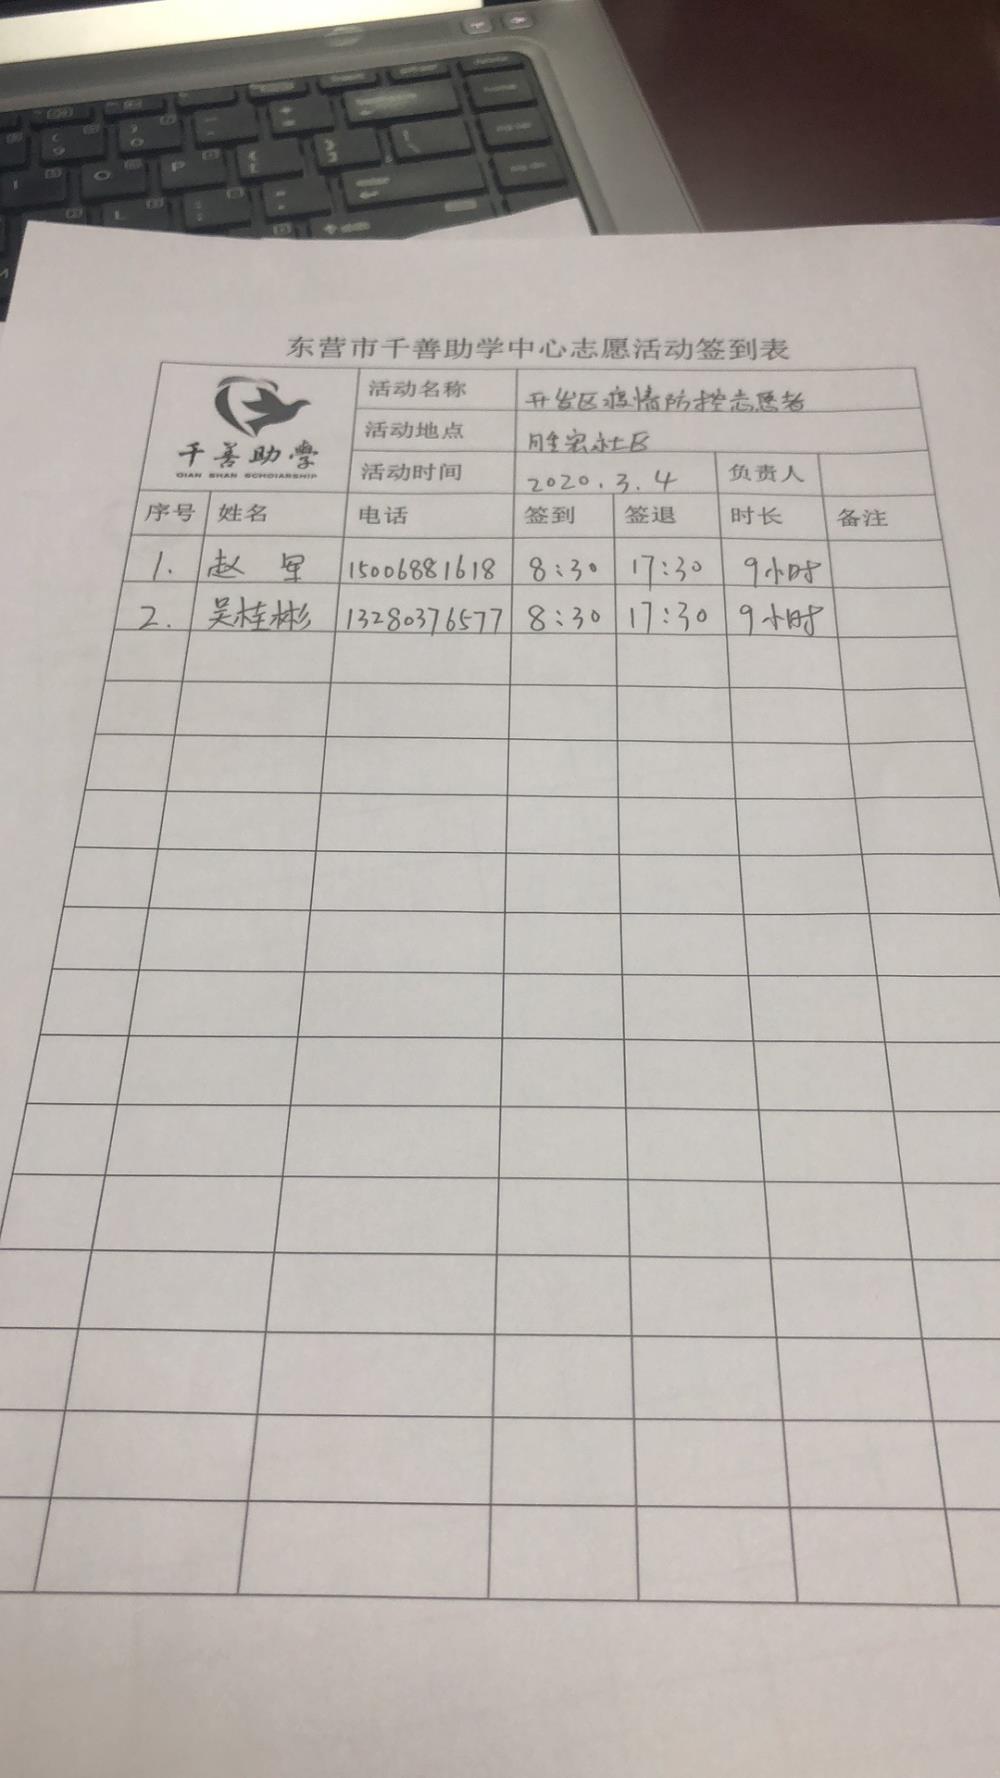 东营市千善助学中心志愿活动签到表
千善助学
QIAN SHAN SCHOLARSHIP
活动名称 开发区疫情防控志愿者
活动地点 胜宏社区
活动时间 2020.3.4 负责人
序号 姓名 电话 签到 签退 时长 备注
1. 赵 军 15006881618 8:30 17:30 9小时
2. 吴桂彬 13280376577 8:30 17:30 9小时